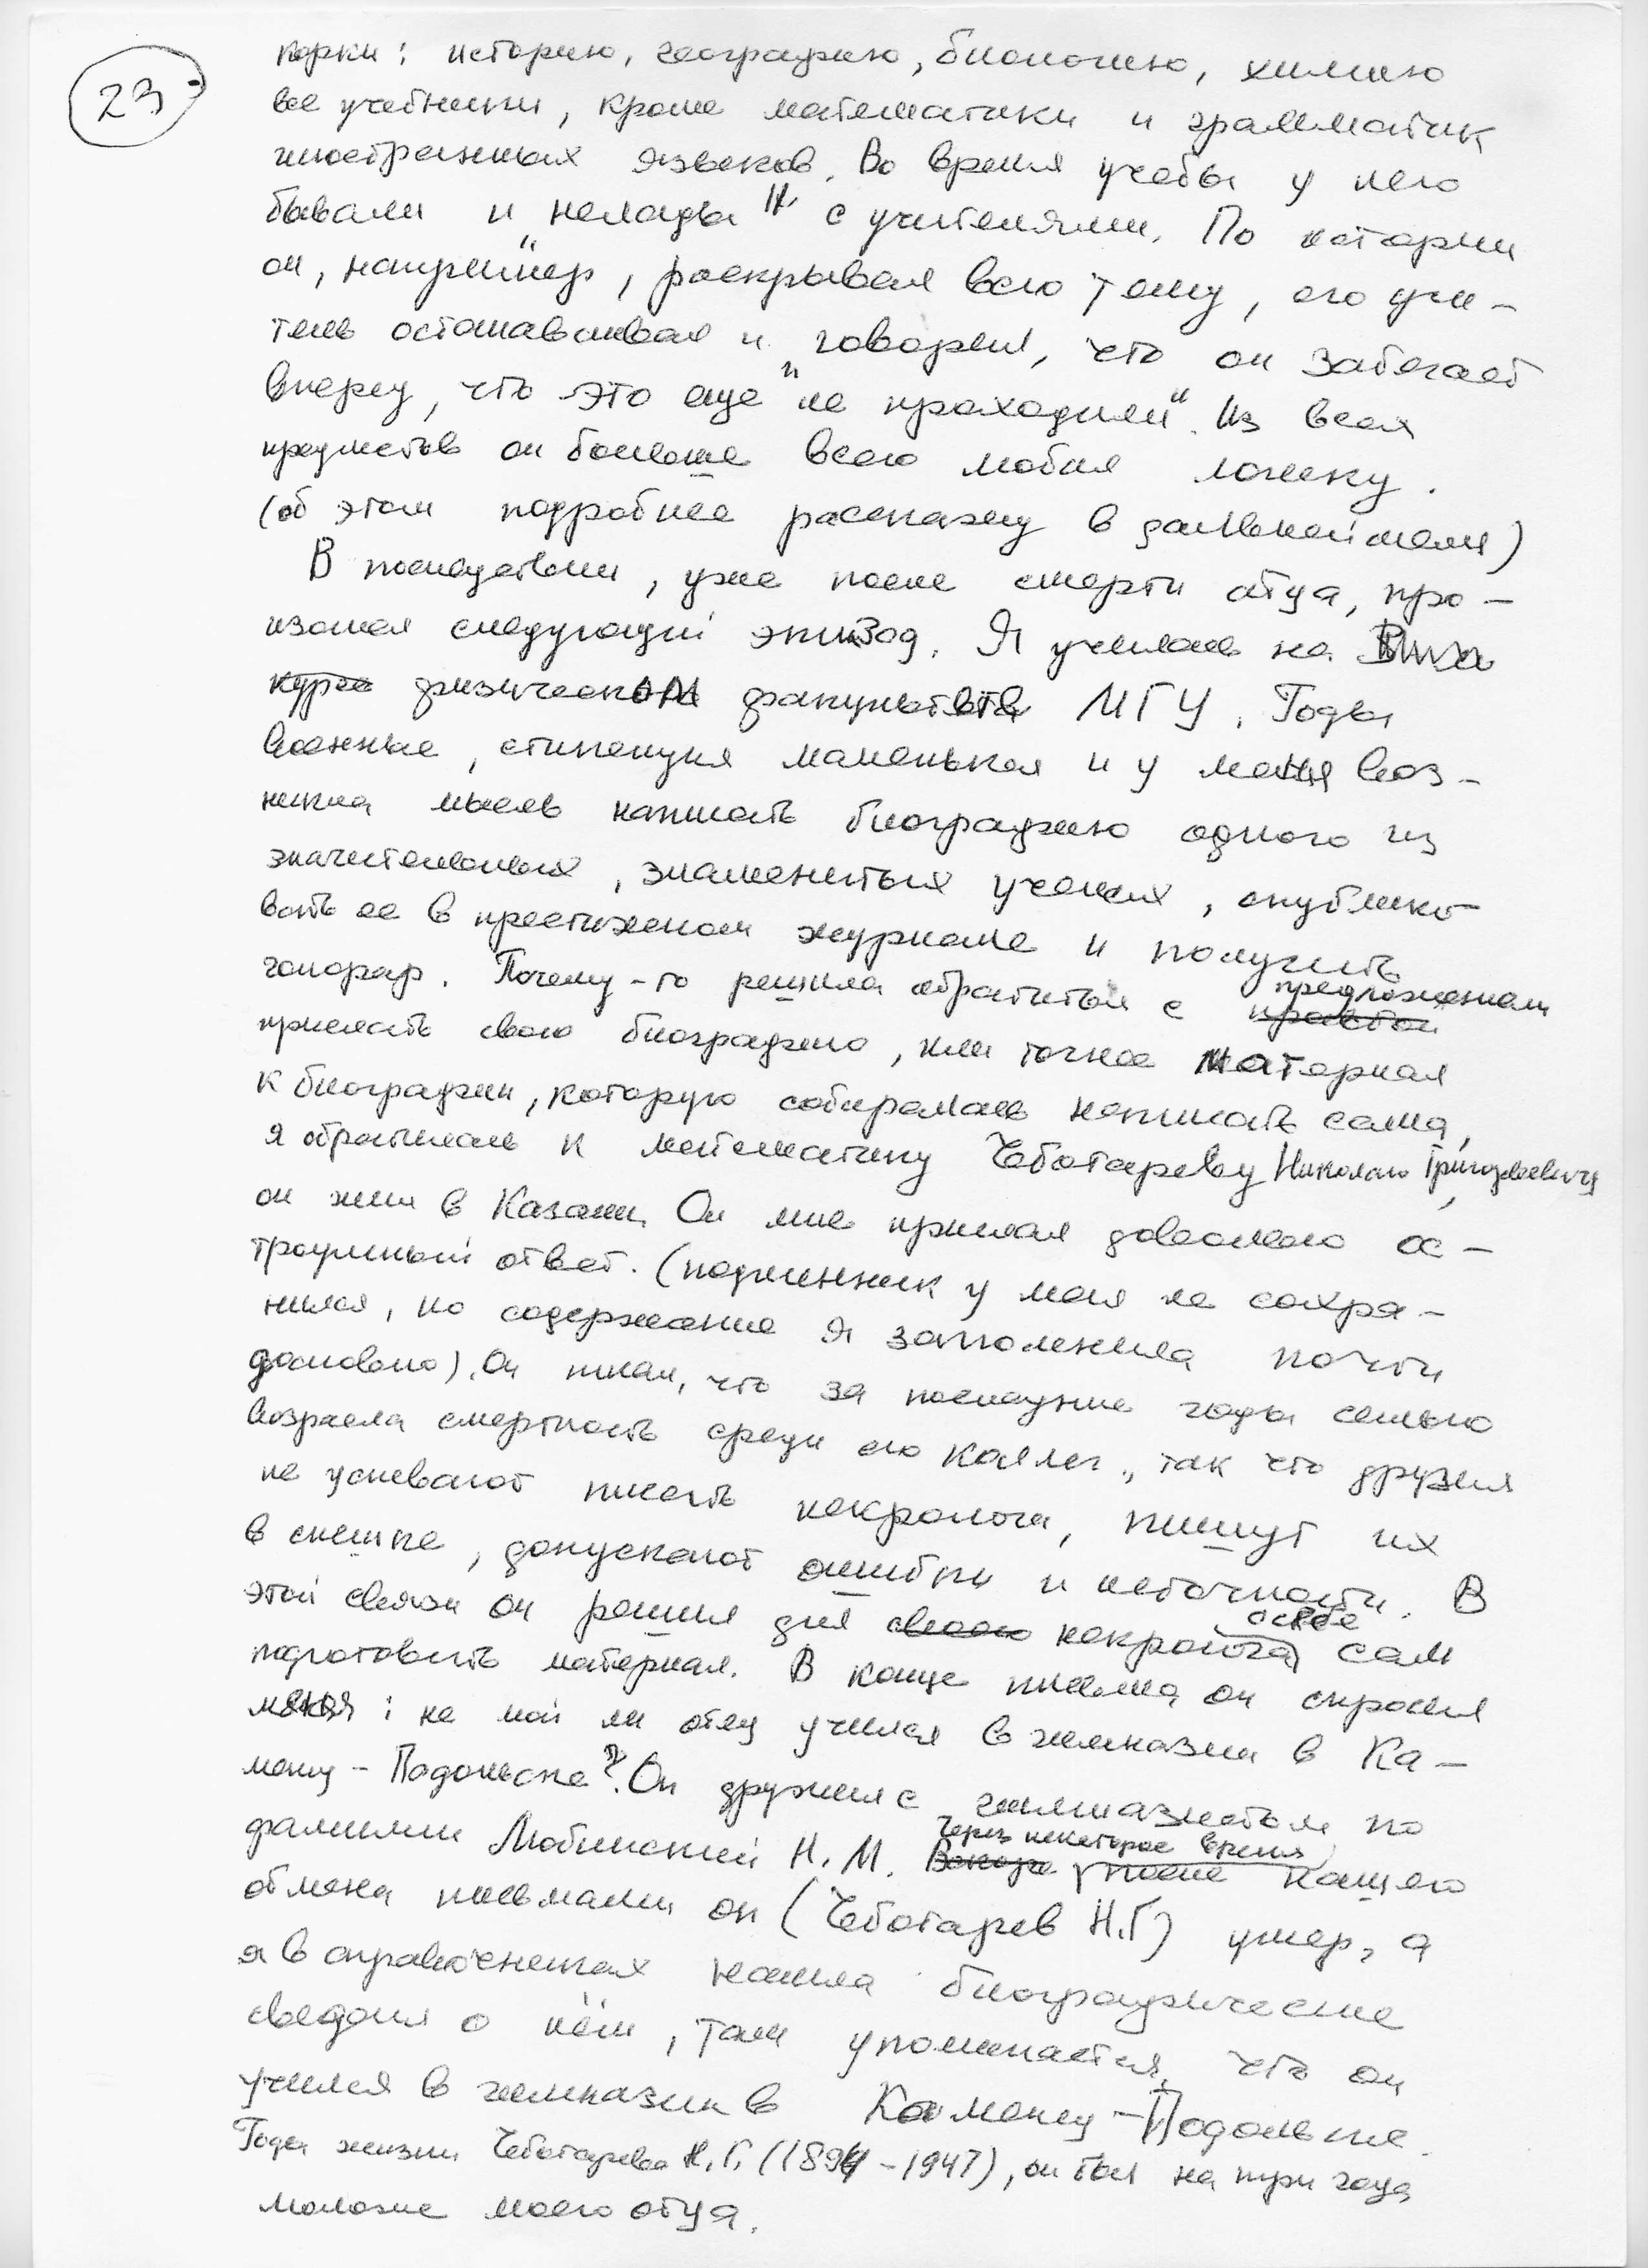 23
корки: историю, географию, биологию, химию
все учебники, кроме математики и грамматик
иностранных языков. Во время учебы у него
бывали и "нелады" с учителями. По истории
он, например, раскрывал всю тему, его учи-
тель останавливал и говорил, что он забегает
вперед, что это еще "не проходили". Из всех
предметов он больше всего любил логику.
(об этом подробнее расскажу в дальнейшем)
В последствии, уже после смерти отца, про-
изошел следующий эпизод. Я училась на
курсе физическом факультете МГУ. Годы
военные, стипендия маленькая и у меня воз-
никла мысль написать биографию одного из
значительных, знаменитых ученых, опублико-
вать ее в престижном журнале и получить
гонорар. Почему-то решила обратиться с просьбой предложением
прислать свою биографию, или точнее материал
к биографии, которую собиралась написать сама,
я обратилась к математику Чеботареву Николаю Григорьевичу,
он жил в Казани. Он мне прислал довольно ос-
троумный ответ. (подлинник у меня не сохра-
нился, но содержание я запомнила почти
дословно). Он писал, что за последние годы сильно
возросла смертность среди его коллег, так что друзья
не успевают писать некрологи, пишут их
в спешке, допускают ошибки и неточности. В
этой связи он решил для своего некролога о себе сам
подготовить материал. В конце письма он спросил
меня: не мой ли отец учился в гимназии в Ка-
менец-Подольске? Он дружил с гимназистом по
фамилии Любинский Н. М. Вскоре Через некоторое время, после нашего
обмена письмами он (Чеботарев Н.Г) умер, а
я в справочниках нашла биографические
сведения о нём, там упоминается, что он
учился в гимназии в Каменец-Подольске.
Годы жизни Чеботарева Н. Г. (1894-1947), он был на три года
моложе моего отца.